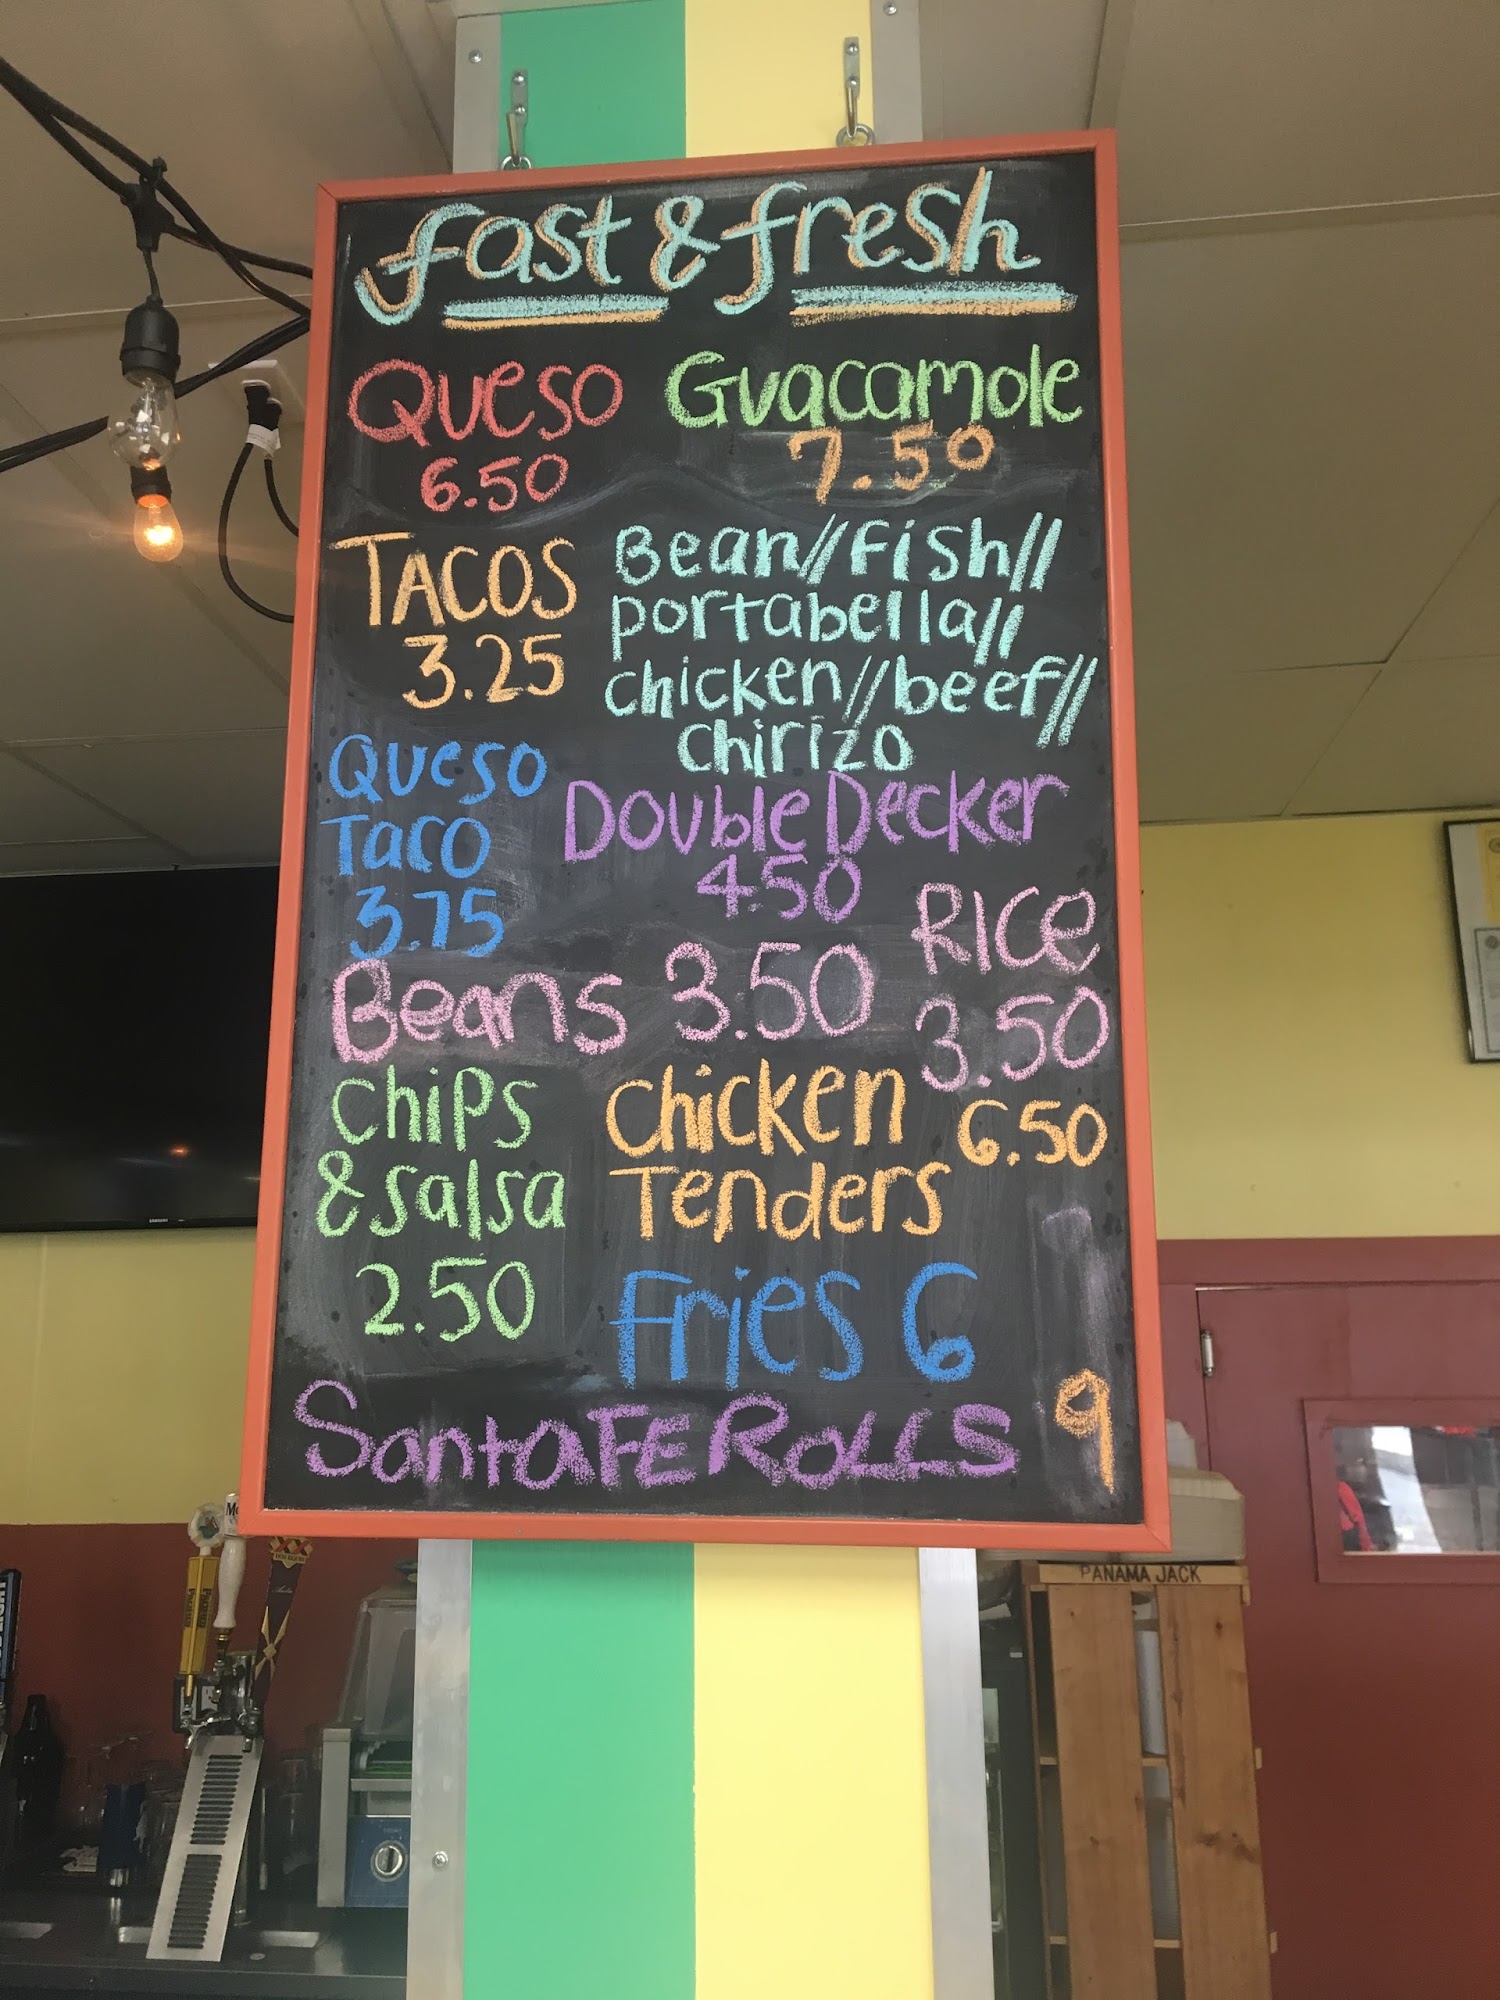 fast & fresh
Queso Guacamole
6.50 7.50
TACOS
3.25
Bean//Fish//
portabella//
chicken//beef//
chirizo
Queso
Taco
3.75
Double Decker
4.50
Rice
3.50
Beans 3.50
Chips
& salsa
2.50
Chicken
Tenders
6.50
Fries 6
Santa FE ROLLS 9
PANAMA JACK
SAMSUNG